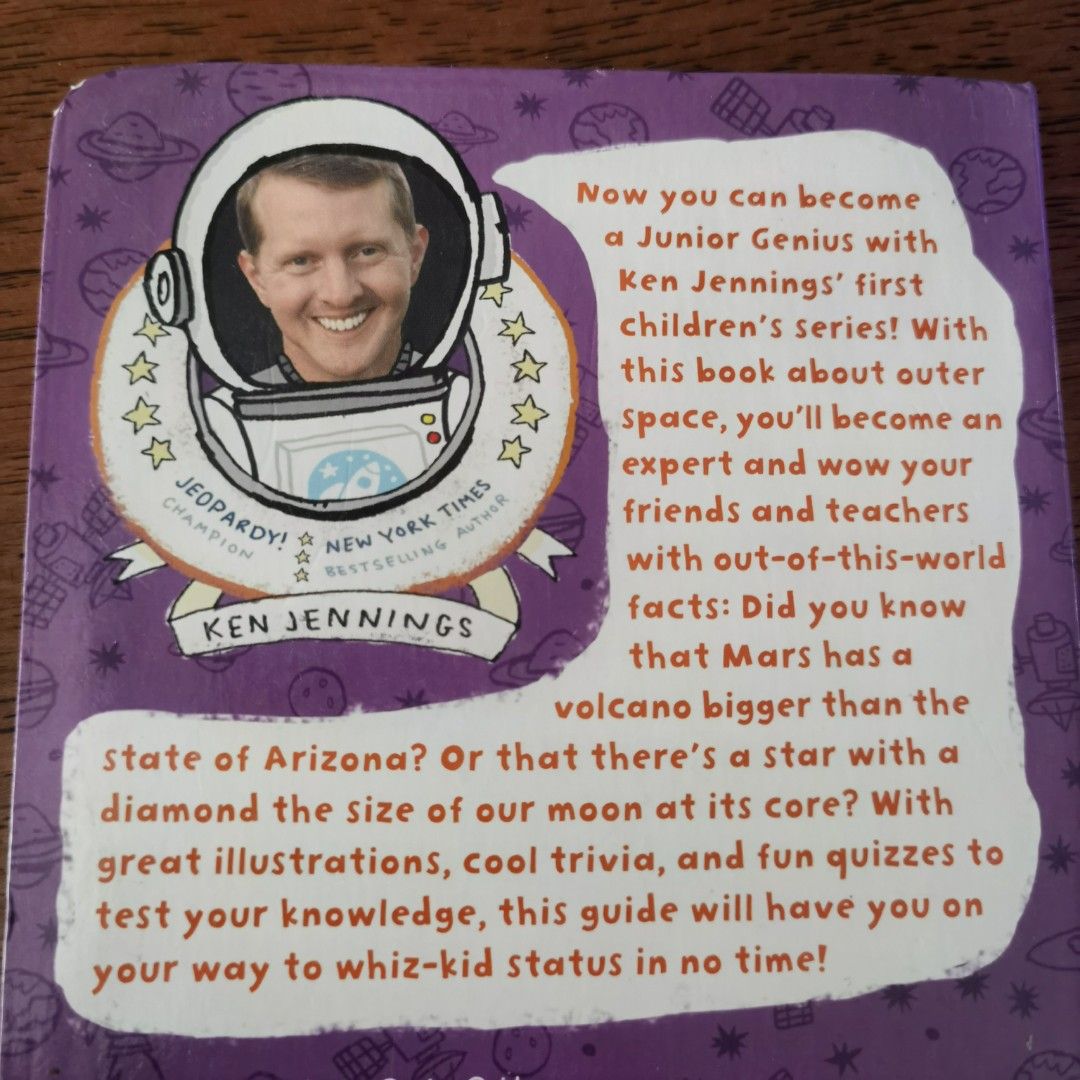 Now you can become
a Junior Genius with
Ken Jennings' first
children's series! With
this book about outer
space, you'll become an
expert and wow your
friends and teachers
with out-of-this-world
facts: Did you know
that Mars has a
volcano bigger than the
state of Arizona? Or that there's a star with a
diamond the size of our moon at its core? With
great illustrations, cool trivia, and fun quizzes to
test your knowledge, this guide will have you on
your way to whiz-kid status in no time!
JEOPARDY!
CHAMPION
NEW YORK TIMES
BESTSELLING AUTHOR
KEN JENNINGS